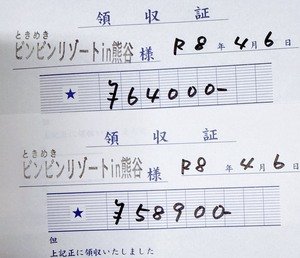 領収証
ときめき
ピンピンリゾートin熊谷 様 R8年4月6日
★ ¥64000-
但
上記正に領収いたしました
領収証
ときめき
ピンピンリゾートin熊谷 様 R8年4月6日
★ ¥58900-
但
上記正に領収いたしました